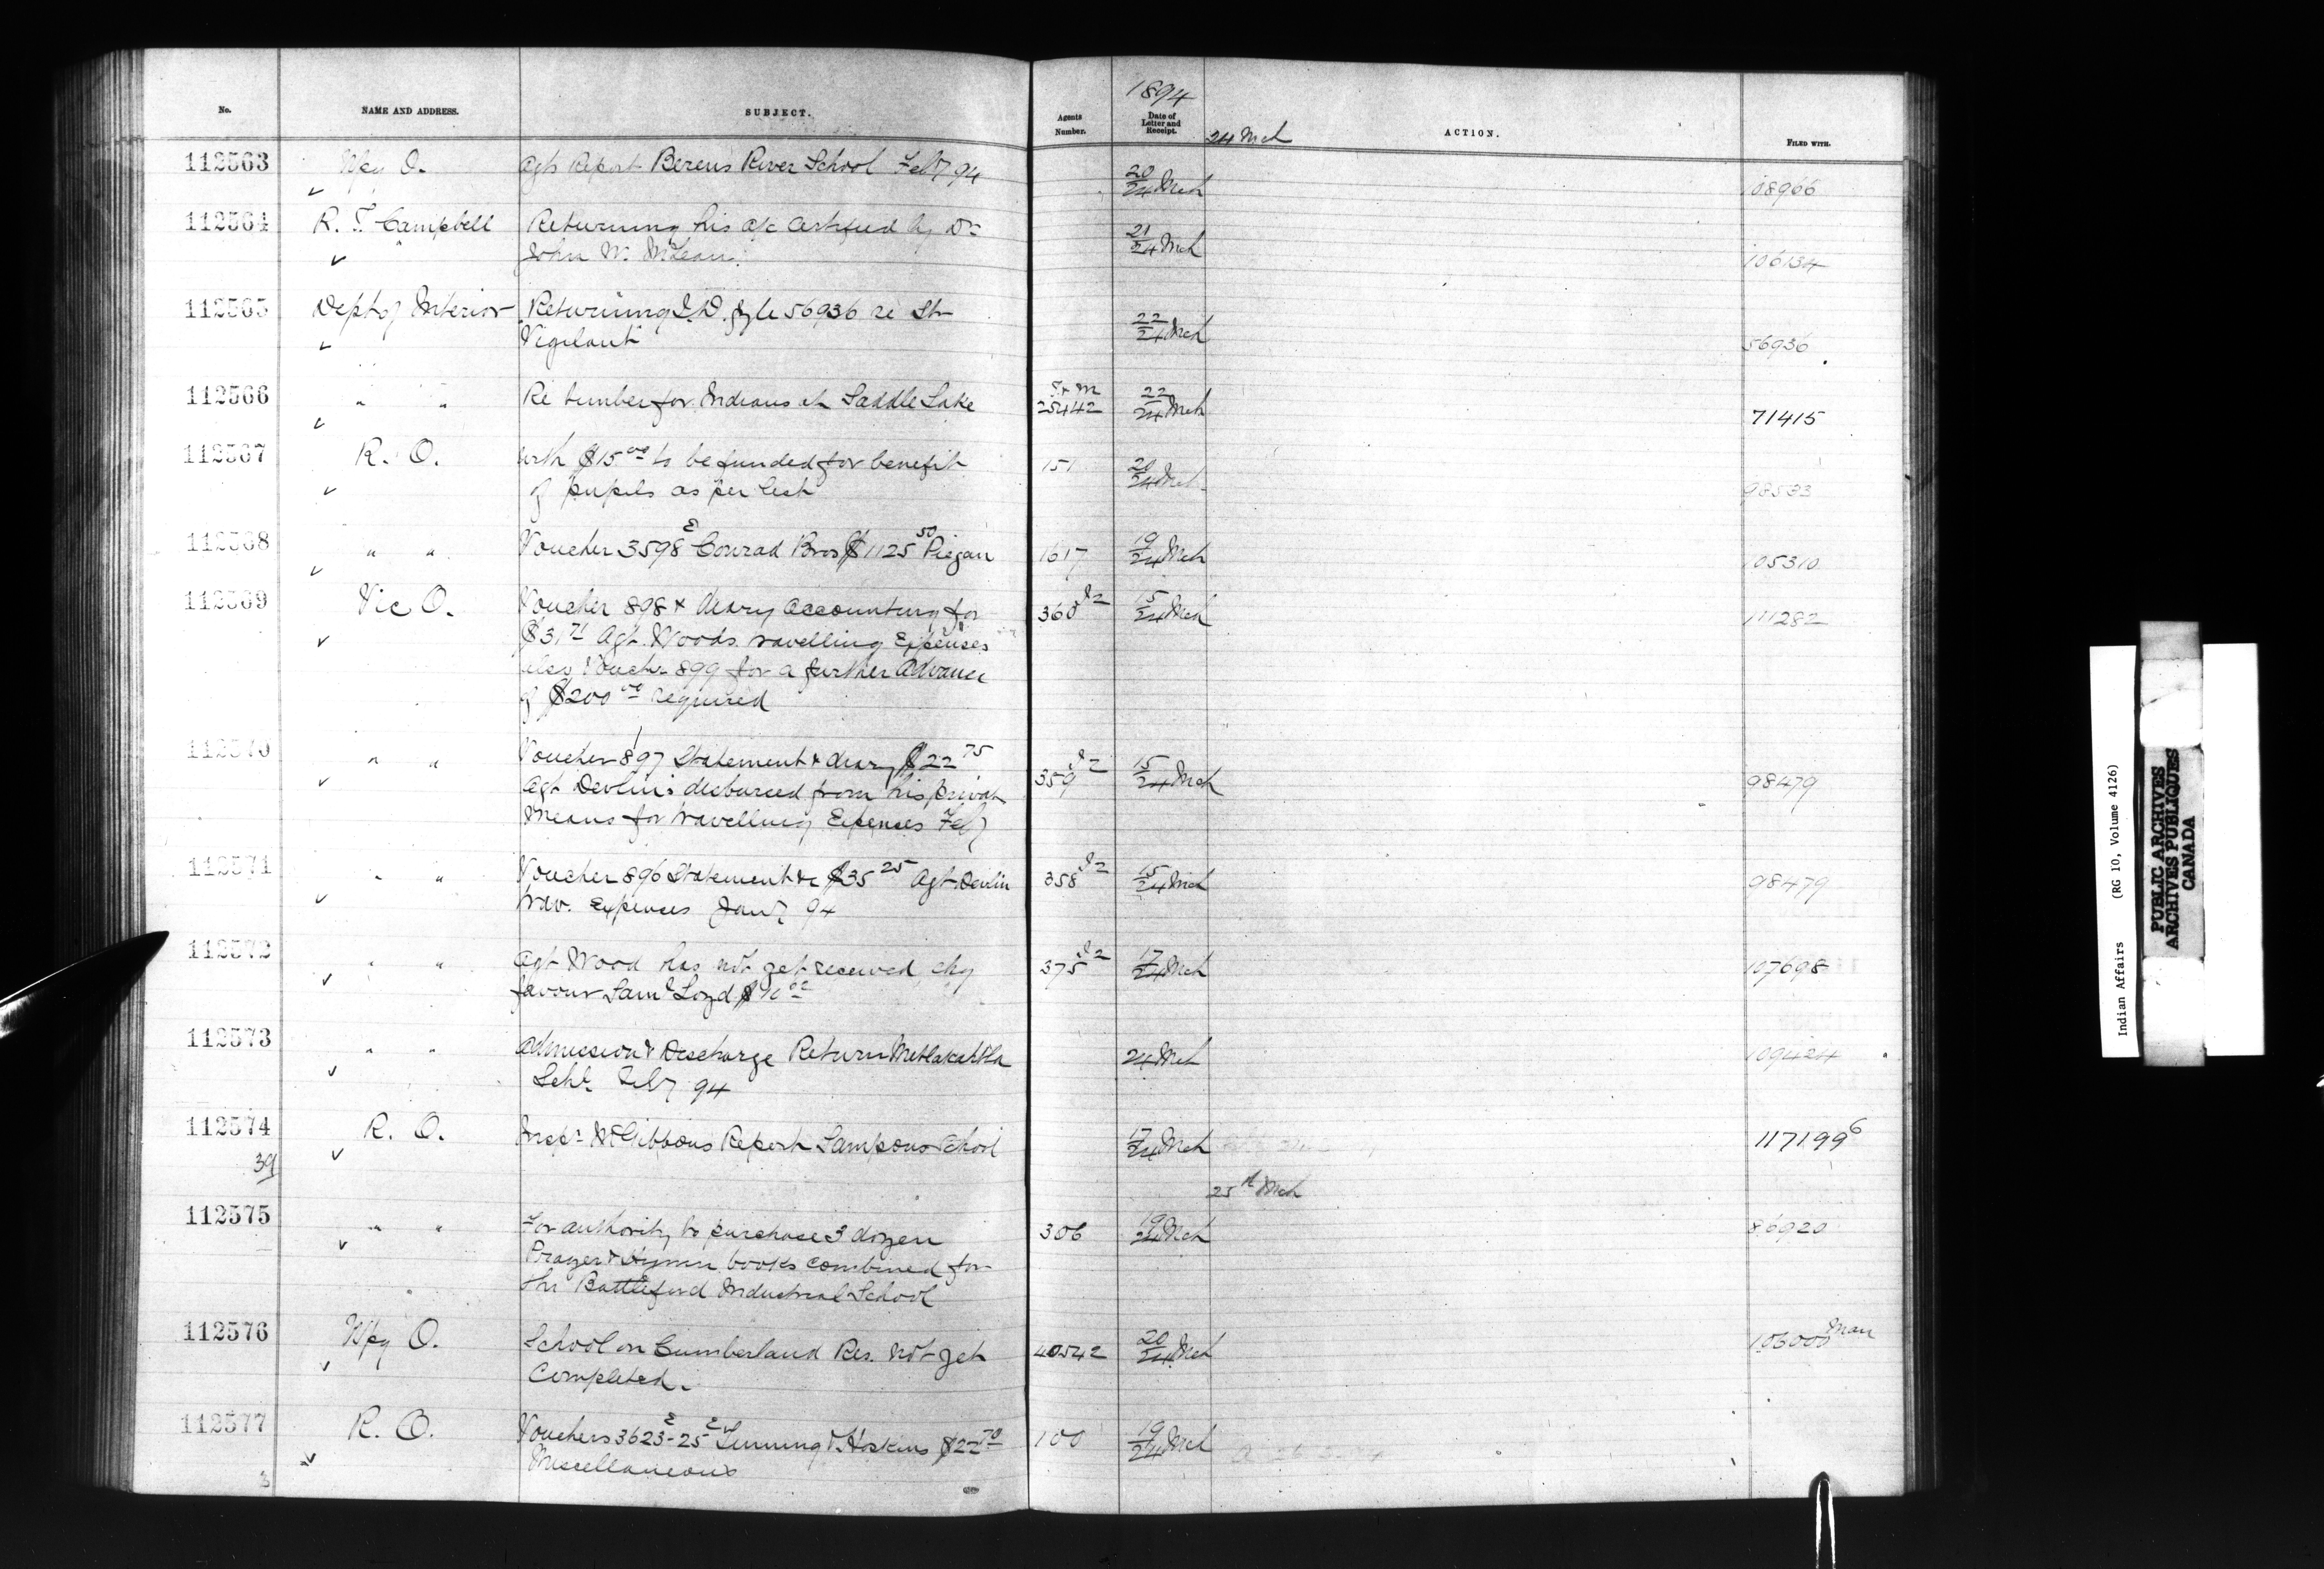 No. NAME AND ADDRESS. SUBJECT. Agents Number. 1894 Date of Letter and Receipt. ACTION. FILED WITH.
24 Mch
112563 Wpg O. Agts Report Berens River School Feby 94 20/24 Mch 108966
112564 R. T. Campbell Returning his a/c certified by Dr 21/24 Mch 106134
John W. McLean
112565 Dept of Interior Returning I.D. file 56936 re Str 22/24 Mch 56936
"Vigilant"
112566 " " Re timber for Indians at Saddle Lake T & M 25442 22/24 Mch 71415
112567 R. O. with $15.00 to be funded for benefit 151 20/24 Mch 98533
of pupils as per list
112568 " " Voucher 3598 E Conrad Bros $1125 50 Piegan 1617 19/24 Mch 105310
112569 Vic O. Voucher 898 & diary accounting for 360 I2 15/24 Mch 111282
$31 71 Agt. Woods travelling Expenses
also Voucher 899 for a further Advance
of $200 00 required
112570 " " Voucher 897 Statement & diary $22 75 359 I2 15/24 Mch 98479
Agt Devlin's disbursed from his private
Means for travelling Expenses Feby
112571 " " Voucher 896 Statement &c $35 25 Agt Devlin 358 I2 15/24 Mch 98479
trav. Expenses Jany 94
112572 " " Agt Wood has not yet received chq 375 I2 17/24 Mch 107698
favour Saml Loyd
112573 " " Admission & Discharge Return Metlakahtla 24 Mch 109424
Schl. Feby 94
112574 R. O. Inspr McGibbons Report Sampsons School 17/24 Mch 117199 6
39
25th Mch
112575 " " For authority to purchase 3 dozen 306 19/24 Mch 86920
Prayer & Hymn books combined for
the Battleford Industrial School
112576 Wpg O. School on Cumberland Res. not yet 40542 20/24 Mch 103000 Man
Completed.
112577 R. O. Vouchers 3623 E - 25 E & Hoskins $22 70 100 19/24 Mch
Miscellaneous
3
Indian Affairs (RG 10, Volume 4126)
PUBLIC ARCHIVES
ARCHIVES PUBLIQUES
CANADA